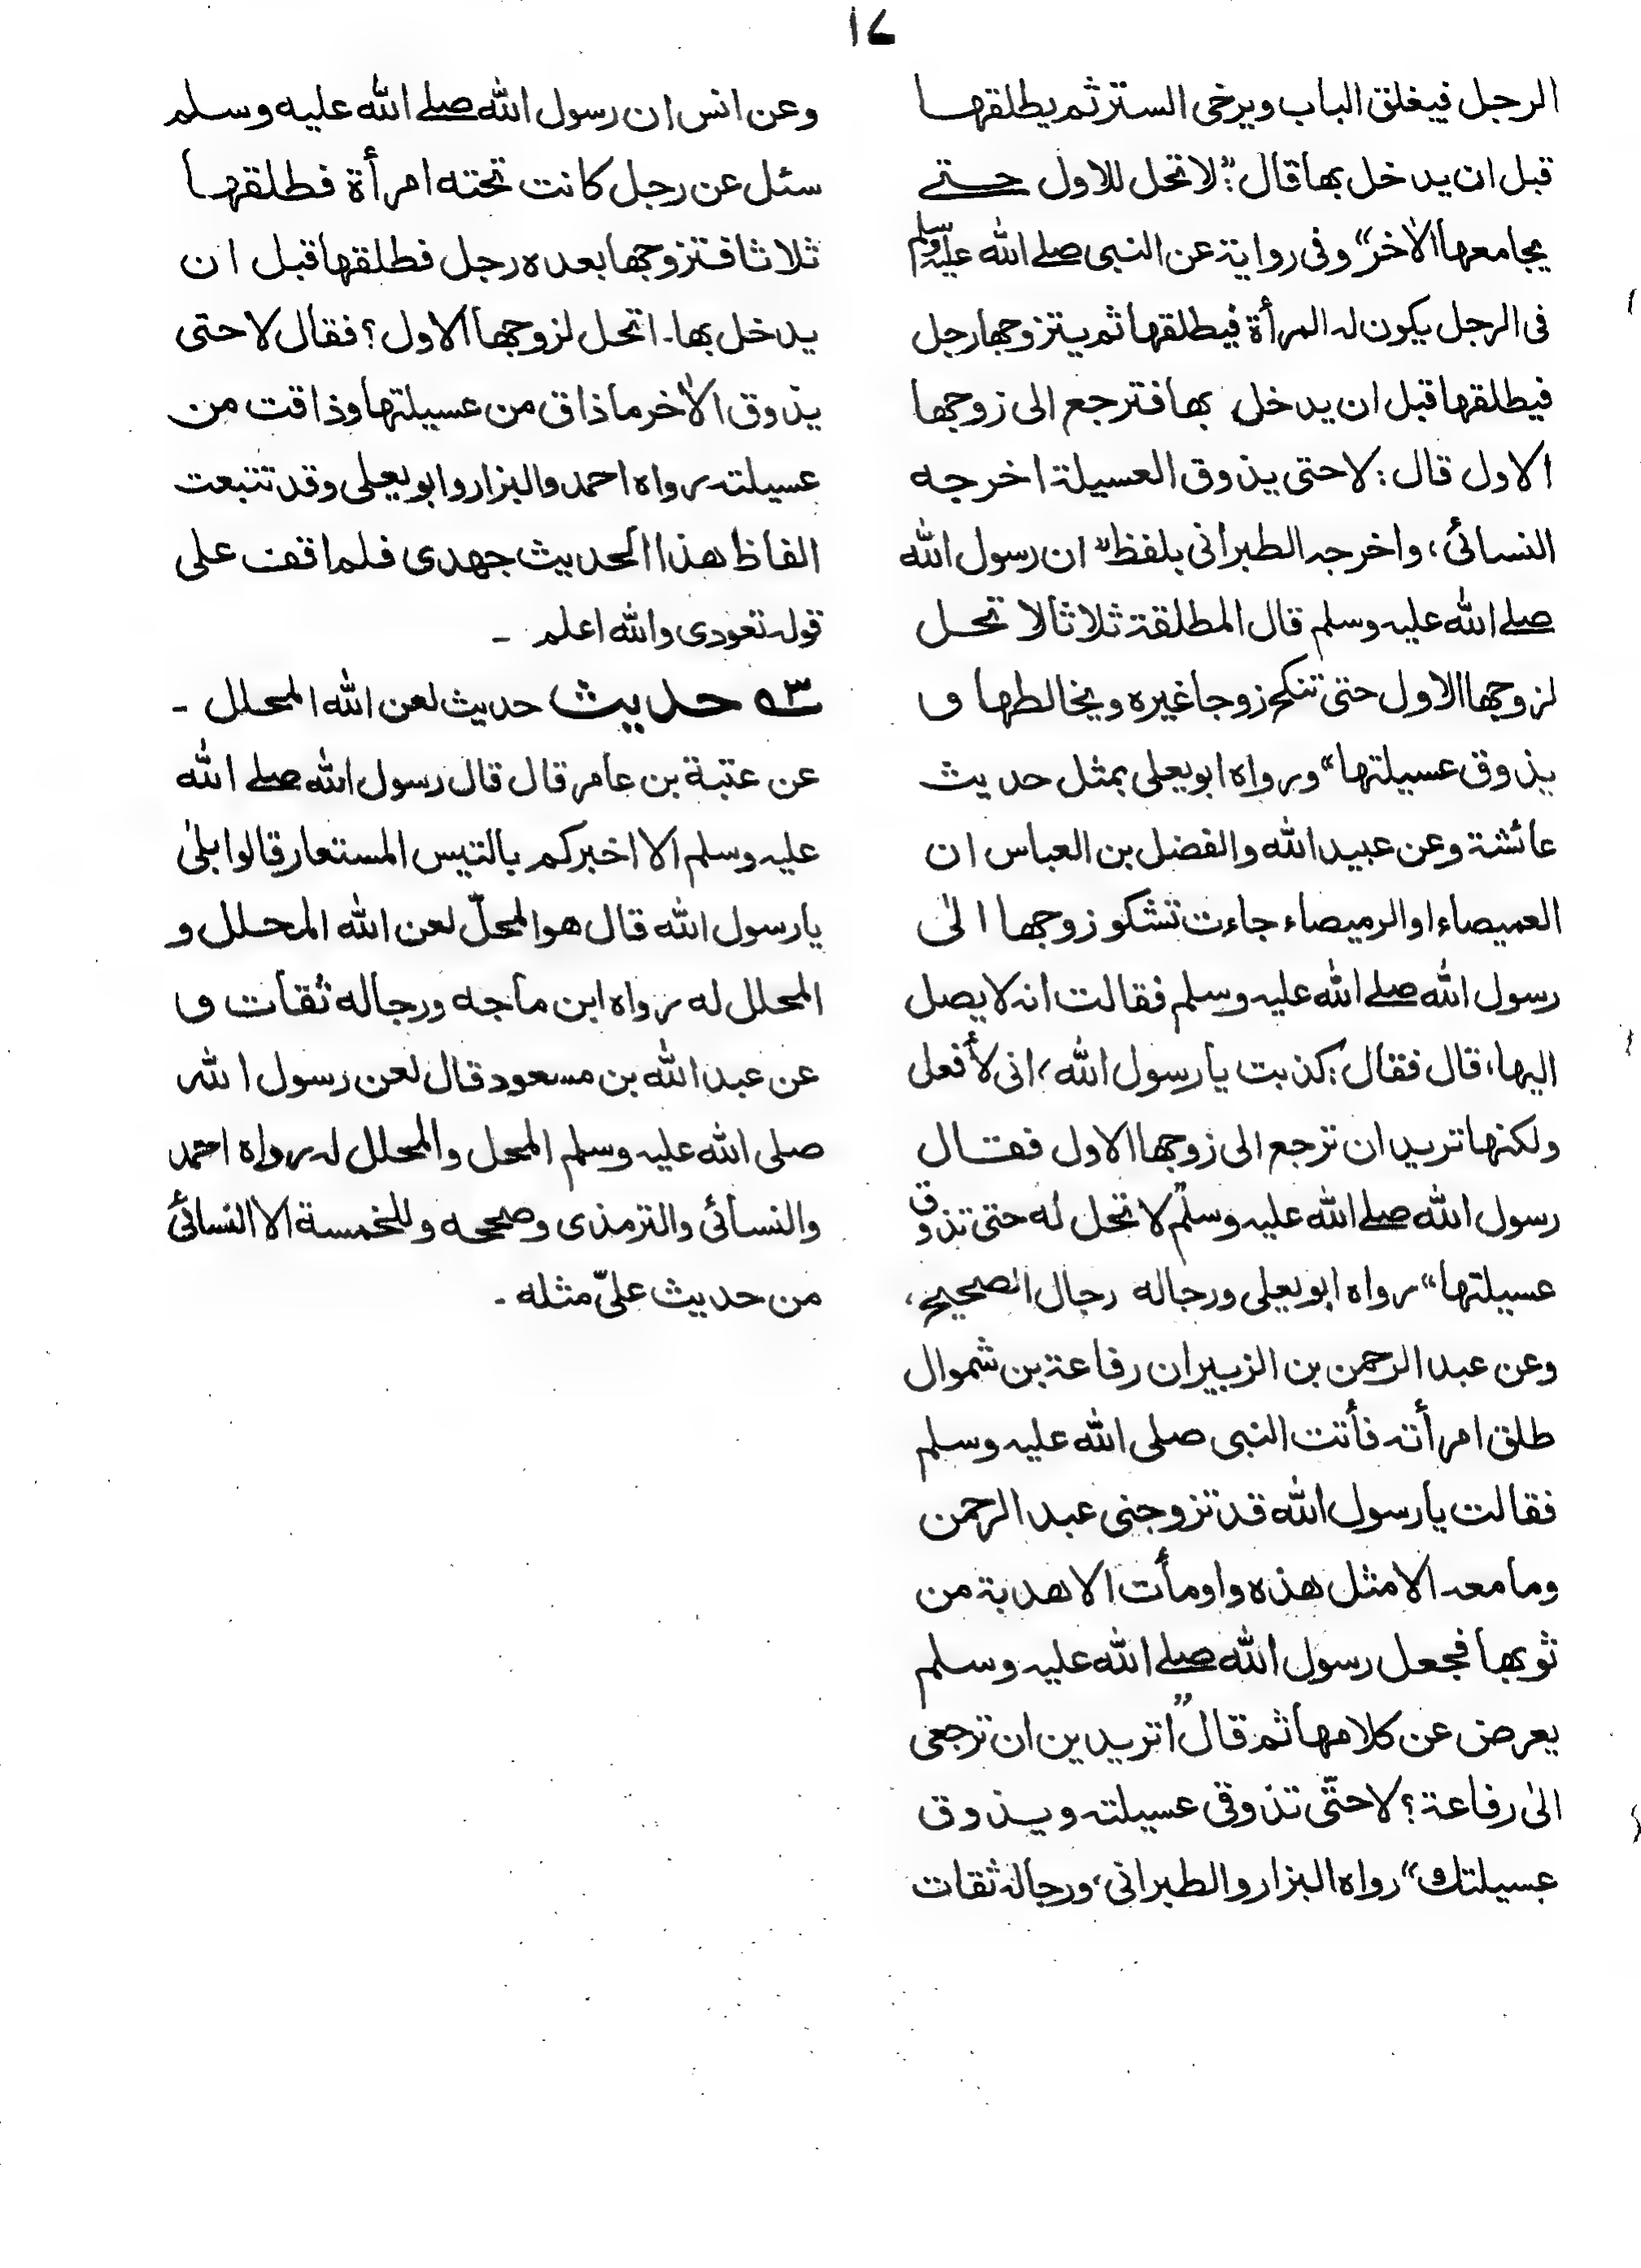 ۱۷
الرجل فيغلق الباب ويرخى الستر ثم يطلقها
قبل ان يدخل بها قال: "لا تحل للاول حتے
يجامعها الاٰخر" وفى رواية عن النبى صلے الله عليه وسلم
فى الرجل يكون له المرأة فيطلقها ثم يتزوجها رجل
فيطلقها قبل ان يدخل بها فترجع الى زوجها
الاول قال: لا حتى يذوق العسيلة اخرجه
النسائى، واخرجه الطبرانى بلفظ "ان رسول الله
صلے الله عليه وسلم قال المطلقة ثلاثا لا تحل
لزوجها الاول حتى تنكح زوجا غيره ويخالطها و
يذوق عسيلتها" ورواه ابو يعلى بمثل حديث
عائشة وعن عبيد الله والفضل بن العباس ان
العميصاء او الرميصاء جاءت تشكو زوجها الىٰ
رسول الله صلے الله عليه وسلم فقالت انه لا يصل
اليها، قال فقال: كذبت يا رسول الله، انى لأفعل
ولكنها تريد ان ترجع الى زوجها الاول فقال
رسول الله صلے الله عليه وسلم "لا تحل له حتى تذوق
عسيلتها" رواه ابو يعلى ورجاله رجال الصحيح،
وعن عبد الرحمن بن الزبير ان رفاعة بن شموال
طلق امرأته فأتت النبى صلى الله عليه وسلم
فقالت يا رسول الله قد تزوجنى عبد الرحمن
وما معه الا مثل هذه واومأت الا هدبة من
ثوبها فجعل رسول الله صلے الله عليه وسلم
يعرض عن كلامها ثم قال "اتريدين ان ترجعى
الىٰ رفاعة؟ لا حتّى تذوقى عسيلته ويذوق
عسيلتك" رواه البزار والطبرانى، ورجاله ثقات
وعن انس ان رسول الله صلے الله عليه وسلم
سئل عن رجل كانت تحته امرأة فطلقها
ثلاثا فتزوجها بعده رجل فطلقها قبل ان
يدخل بها۔ اتحل لزوجها الاول؟ فقال لا حتى
يذوق الاٰخر ما ذاق من عسيلتها وذاقت من
عسيلته رواه احمد والبزار وابو يعلى وقد تتبعت
الفاظ هذا الحديث جهدى فلم اقف على
قوله تعودى والله اعلم ۔
۵۳ حديث حديث لعن الله المحلل ۔
عن عتبة بن عامر قال قال رسول الله صلے الله
عليه وسلم الا اخبركم بالتيس المستعار قالوا بلىٰ
يا رسول الله قال هو المحلّ لعن الله المحلل و
المحلل له رواه ابن ماجه ورجاله ثقات و
عن عبد الله بن مسعود قال لعن رسول الله
صلى الله عليه وسلم المحل والمحلل له رواه احمد
والنسائى والترمذى وصححه وللخمسة الا النسائى
من حديث علىّ مثله ۔